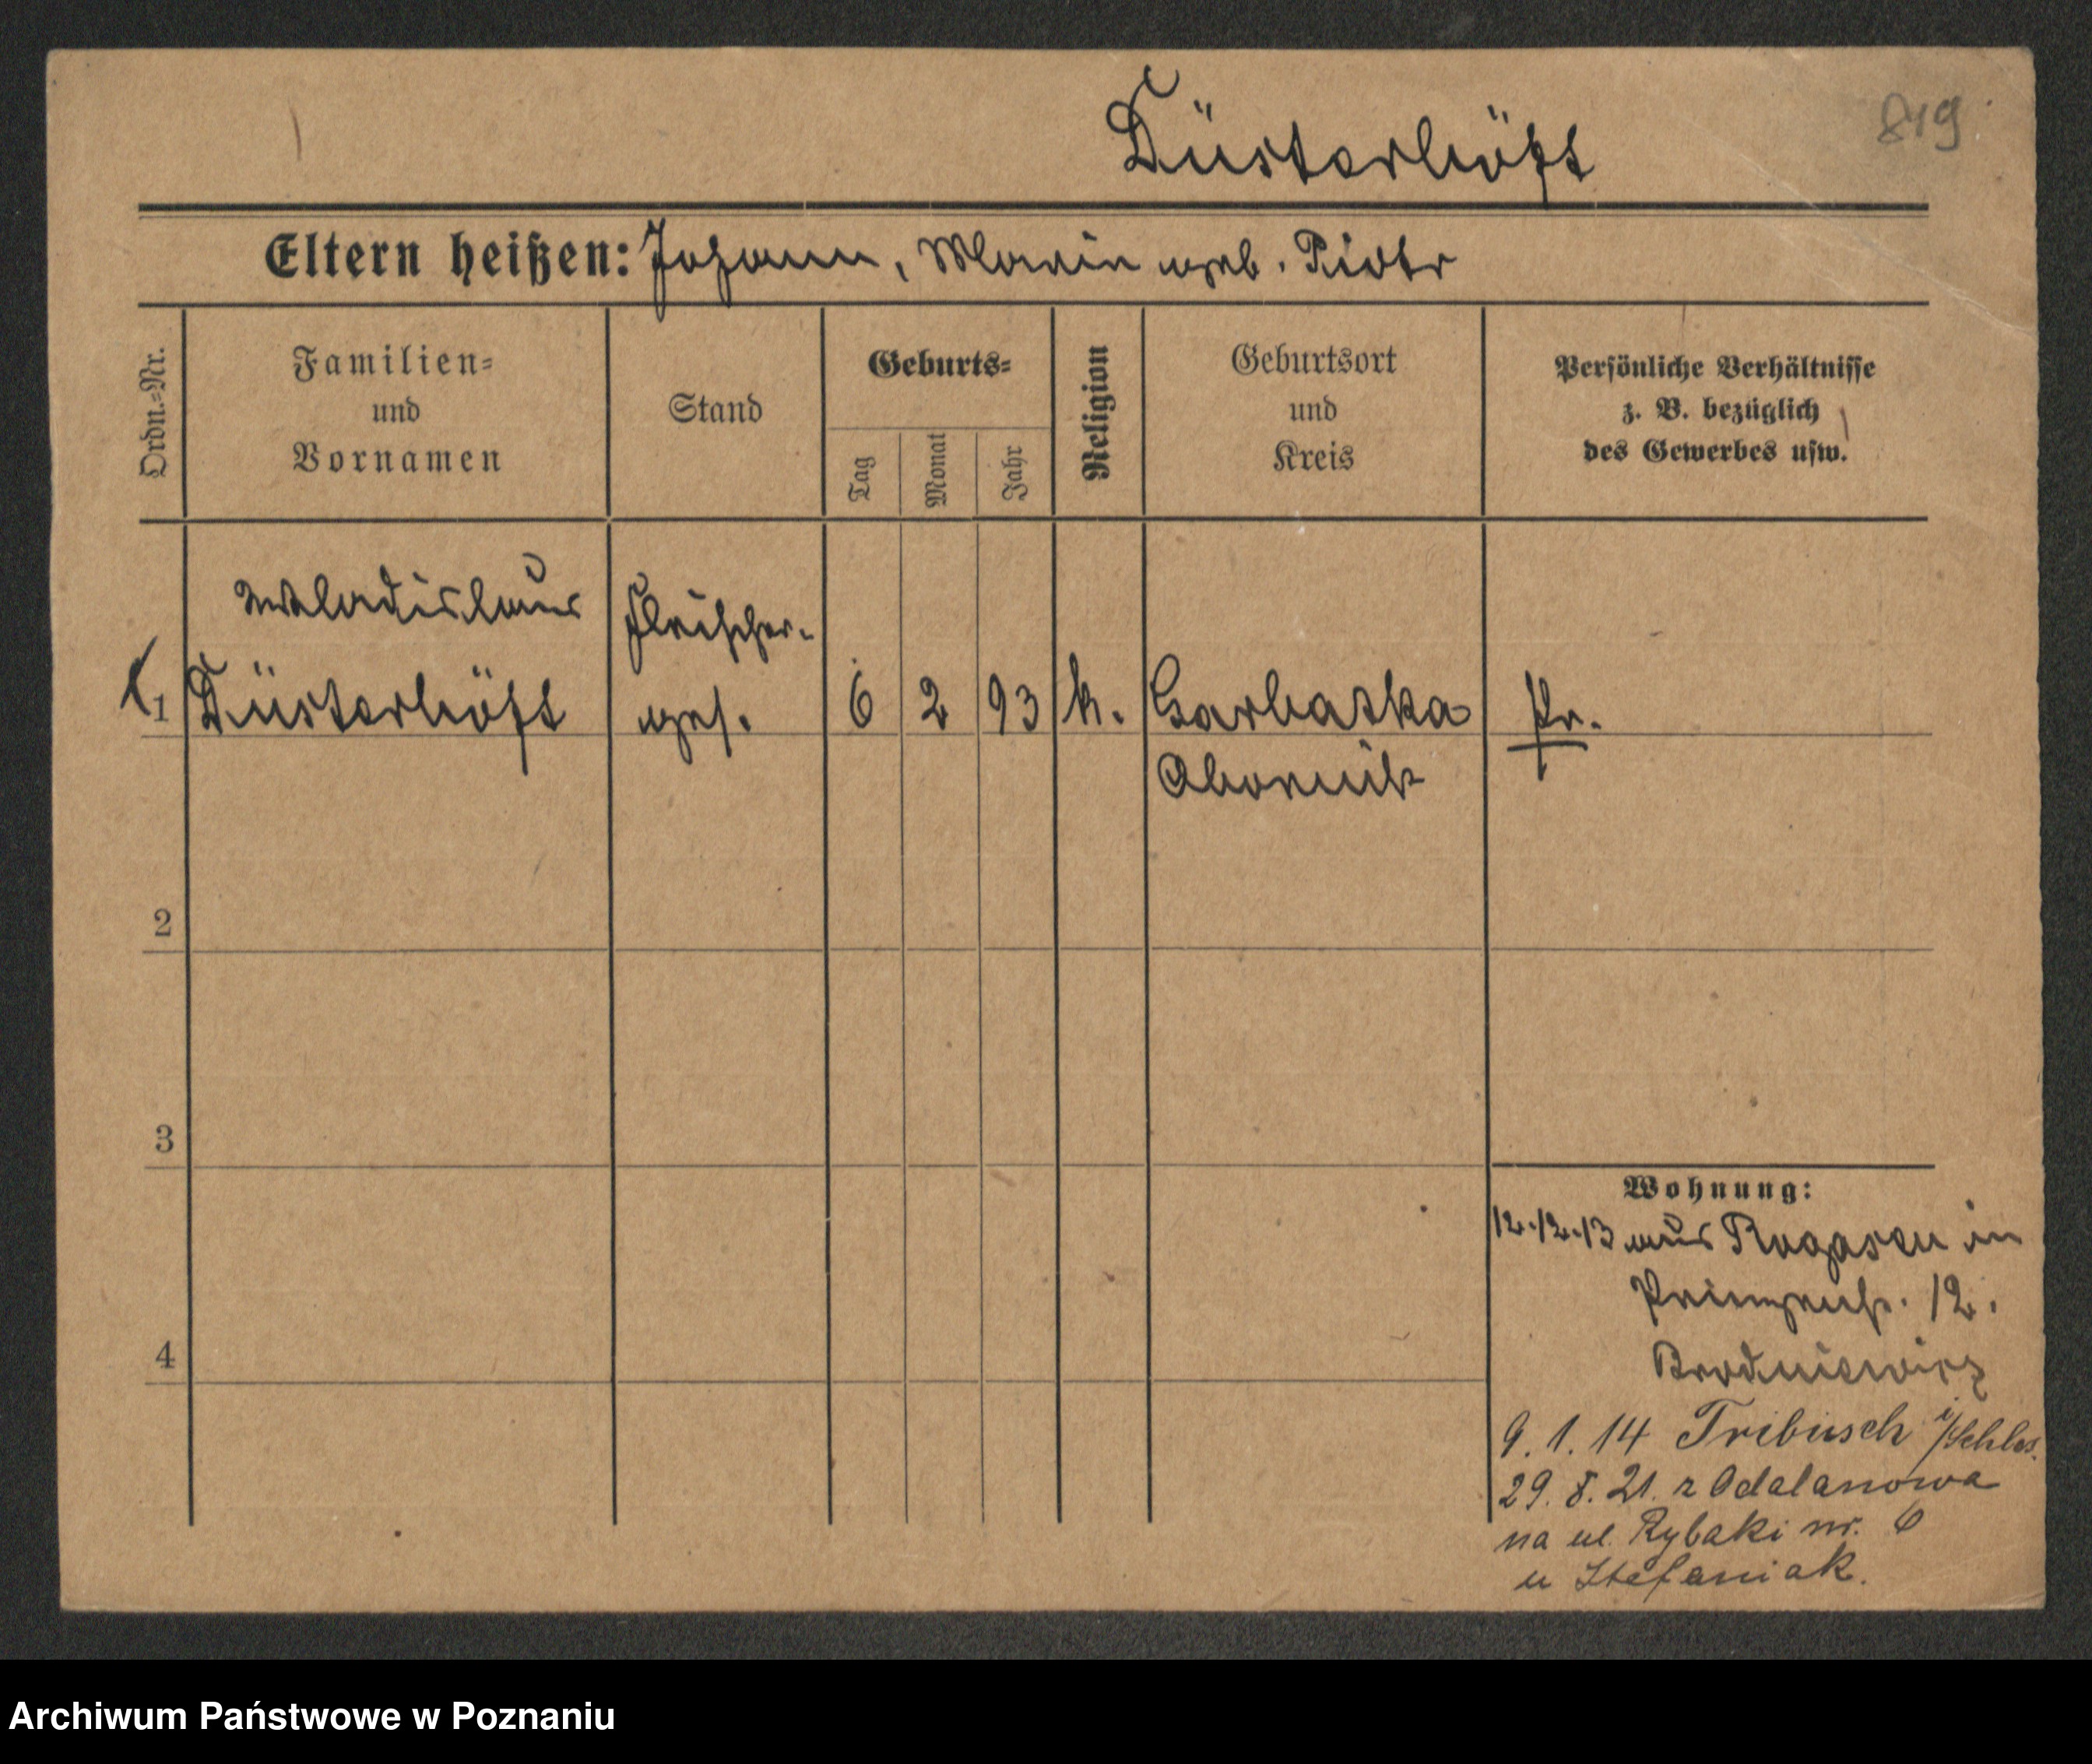 Düsterhöft
819
Eltern heißen: Johann, Maria geb. Piotr
Ordn.=Nr.
Familien=
und
Vornamen
Stand
Geburts=
Tag
Monat
Jahr
Religion
Geburtsort
und
Kreis
Persönliche Verhältnisse
z. B. bezüglich
des Gewerbes usw.
Wladislaus
Fleischer-
1 Düsterhöft ges. 6 2 93 k. Garbatka Pr.
Obornik
2
3
4
Wohnung:
12.12.13 aus Rogasen in
Prinzenstr. 12.
Brodniewicz
9. 1. 14 Tribusch i/Schles.
29. 8. 21. z Odalanowa
na ul. Rybaki nr. 6
u Stefaniak.
Archiwum Państwowe w Poznaniu